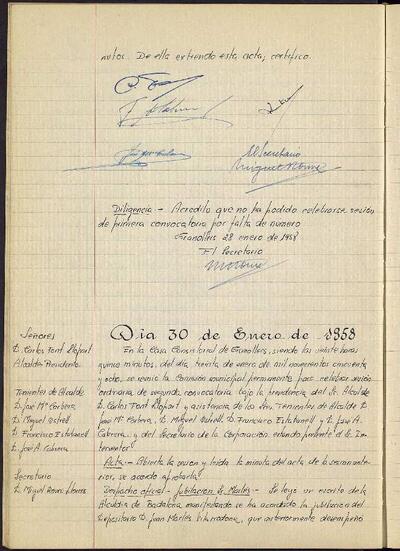 nutos. De ella extiendo esta acta, certifico.
El Secretario
Diligencia - Acredito que no ha podido celebrarse sesión
de primera convocatoria por falta de número
Granollers 28 enero de 1958
El Secretario
Señores
D. Carlos Font Llopart
Alcalde Presidente
Tenientes de Alcalde
D. José Mª Corbera
D. Miguel Estrell
D. Francisco Estabanell
D. José A. Cabrera
Secretario
D. Miguel
Dia 30 de Enero de 1958
En la Casa Consistorial de Granollers, siendo las veinte horas
quince minutos, del día treinta de enero de mil novecientos cincuenta
y ocho, se reunió la Comision municipal permanente para celebrar sesión
ordinaria de segunda convocatoria bajo la presidencia del Sr. Alcalde
D. Carlos Font Llopart y asistencia de los Sres. Tenientes de Alcalde D.
José Mª Corbera, D. Miguel Estrell, D. Francisco Estabanell y D. José A.
Cabrera, y del Secretario de la Corporacion estando presente el Sr. In-
terventor
Acta - Abierta la sesion y leida la minuta del acta de la sesion ante-
rior, se acordó aprobarla.
Despacho oficial - Jubilación Sr. Martés - Se leyo un escrito de la
Alcaldia de Badalona manifestando se ha acordado la jubilacion del
Depositario D. Juan Martés, que anteriormente desempeñó